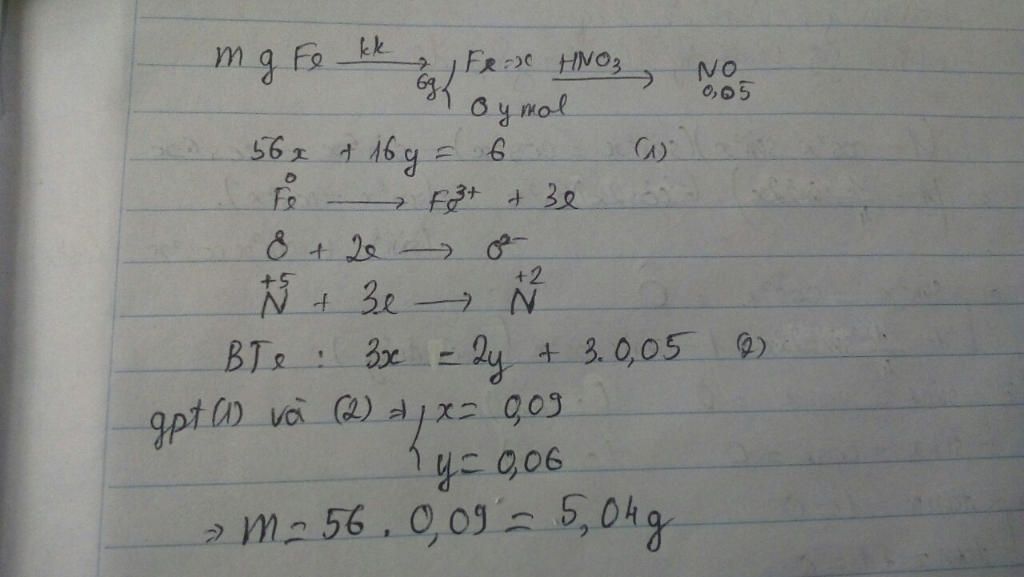 m g Fe —kk→ 6g { Fe = x —HNO3→ NO
O y mol 0,05
56x + 16y = 6 (1)
Fe⁰ → Fe³⁺ + 3e
O + 2e → O²⁻
N⁺⁵ + 3e → N⁺²
BTe : 3x = 2y + 3.0,05 (2)
gpt (1) và (2) ⇒ { x = 0,09
y = 0,06
⇒ m = 56 . 0,09 = 5,04g